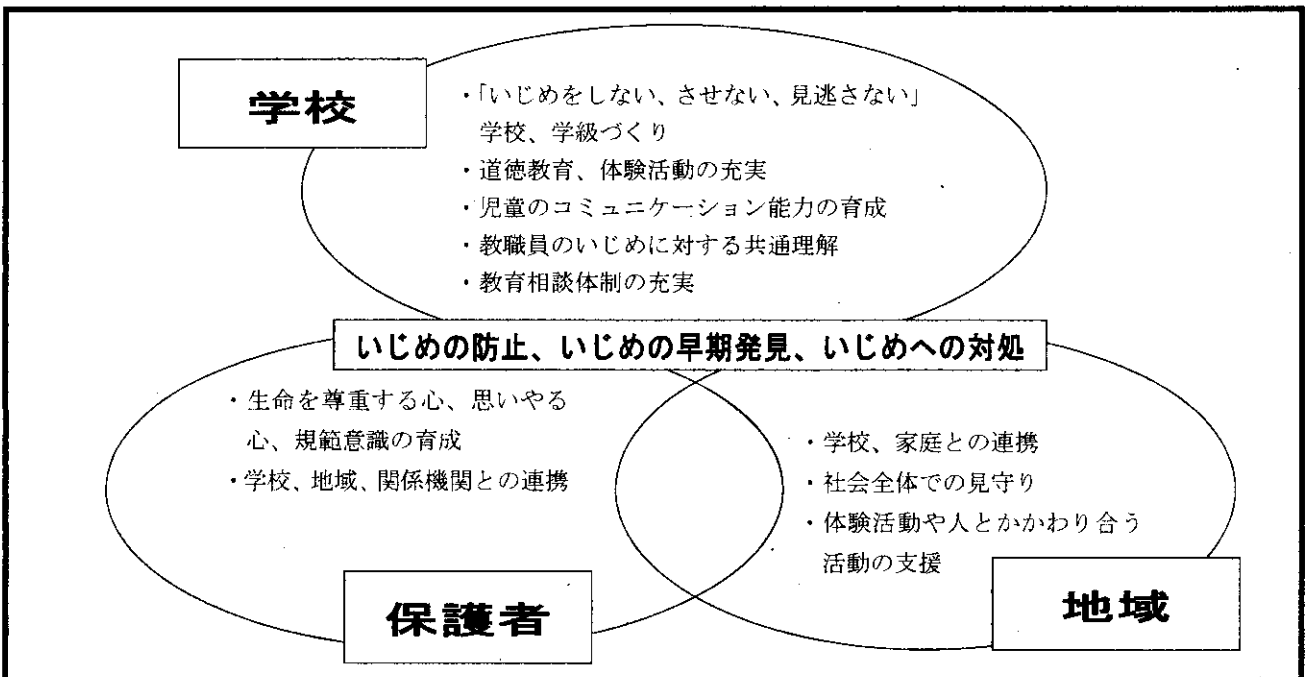 学校
・「いじめをしない、させない、見逃さない」
学校、学級づくり
・道徳教育、体験活動の充実
・児童のコミュニケーション能力の育成
・教職員のいじめに対する共通理解
・教育相談体制の充実
いじめの防止、いじめの早期発見、いじめへの対処
・生命を尊重する心、思いやる
心、規範意識の育成
・学校、地域、関係機関との連携
保護者
・学校、家庭との連携
・社会全体での見守り
・体験活動や人とかかわり合う
活動の支援
地域